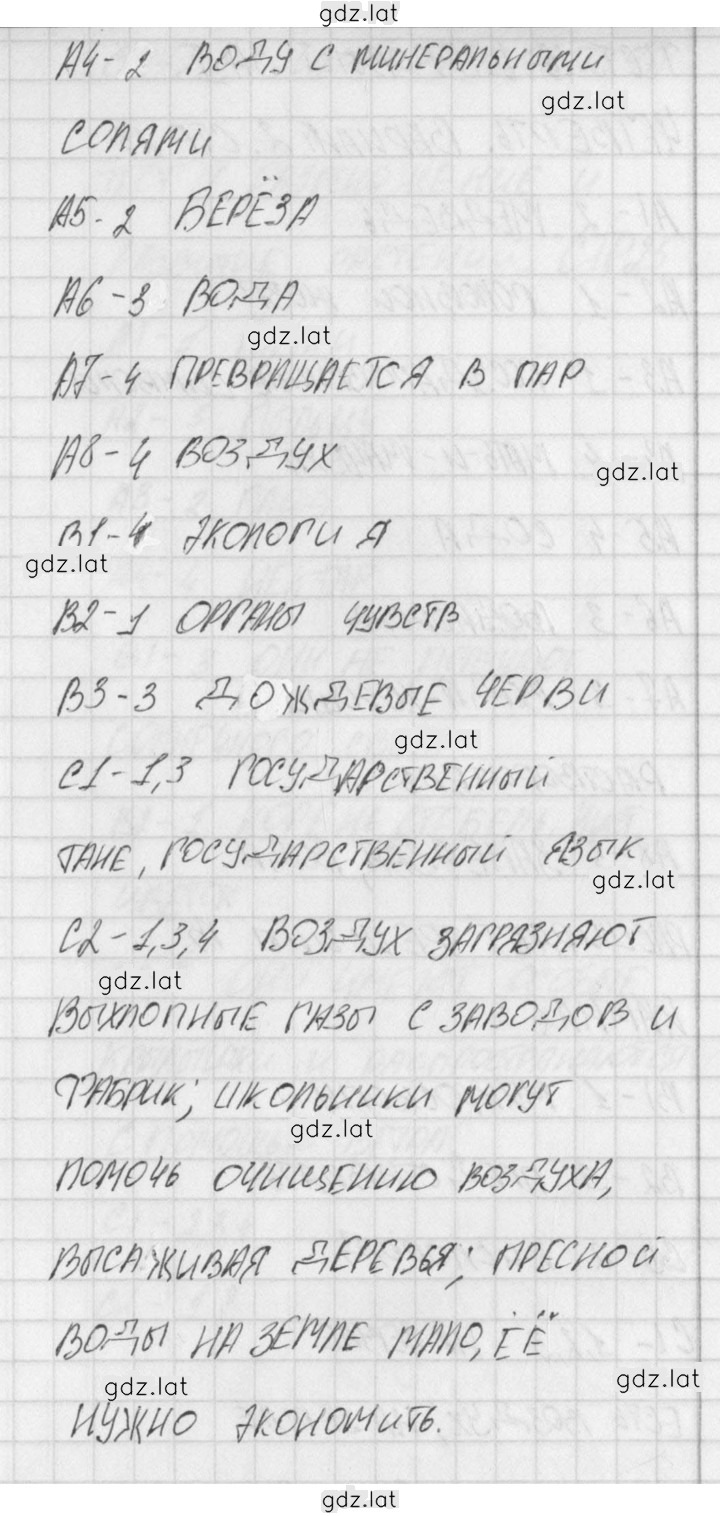 gdz.lat
А4-2 ВОДУ С МИНЕРАЛЬНЫМИ
gdz.lat
СОЛЯМИ
А5-2 БЕРЁЗА
А6-3 ВОДА
gdz.lat
А7-4 ПРЕВРАЩАЕТСЯ В ПАР
А8-4 ВОЗДУХ
gdz.lat
В1-4 ЭКОЛОГИЯ
gdz.lat
В2-1 ОРГАНЫ ЧУВСТВ
В3-3 ДОЖДЕВЫЕ ЧЕРВИ
gdz.lat
С1-1,3 ГОСУДАРСТВЕННЫЙ
ГАНЕ, ГОСУДАРСТВЕННЫЙ ЯЗЫК
gdz.lat
С2-1,3,4 ВОЗДУХ ЗАГРЯЗНЯЮТ
gdz.lat
ВЫХЛОПНЫЕ ГАЗЫ С ЗАВОДОВ И
ФАБРИК; ШКОЛЬНИКИ МОГУТ
gdz.lat
ПОМОЧЬ ОЧИЩЕНИЮ ВОЗДУХА,
ВЫСАЖИВАЯ ДЕРЕВЬЯ; ПРЕСНОЙ
ВОДЫ НА ЗЕМЛЕ МАЛО, ЕЁ
gdz.lat
gdz.lat
НУЖНО ЭКОНОМИТЬ.
gdz.lat